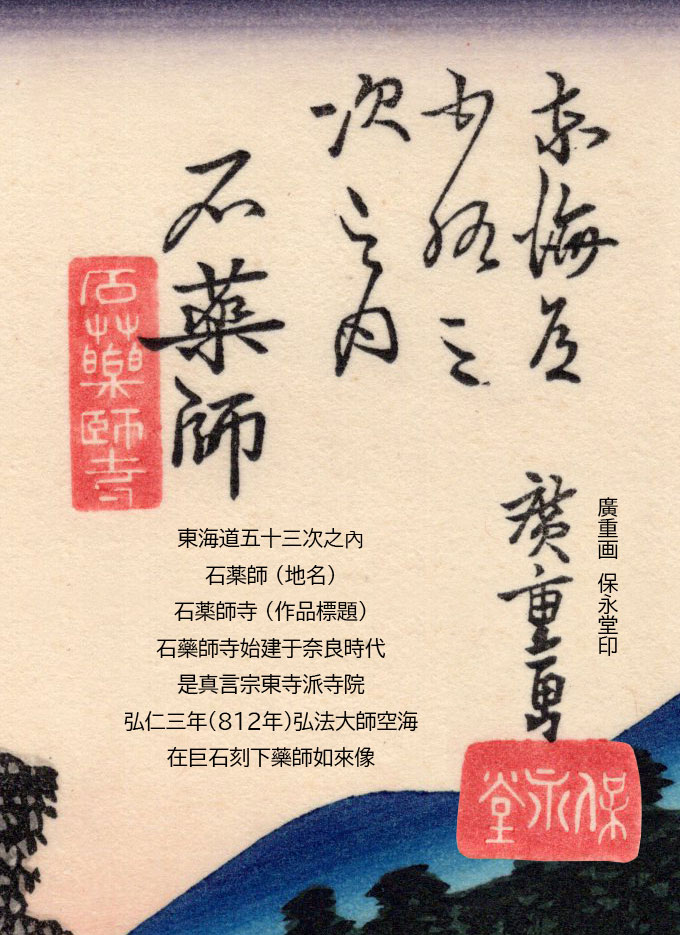 東海道
五拾三
次之内
石薬師
石藥師寺
廣重画
保永堂
廣重画 保永堂印
東海道五十三次之內
石薬師（地名）
石薬師寺（作品標題）
石藥師寺始建于奈良時代
是真言宗東寺派寺院
弘仁三年（812年）弘法大師空海
在巨石刻下藥師如來像